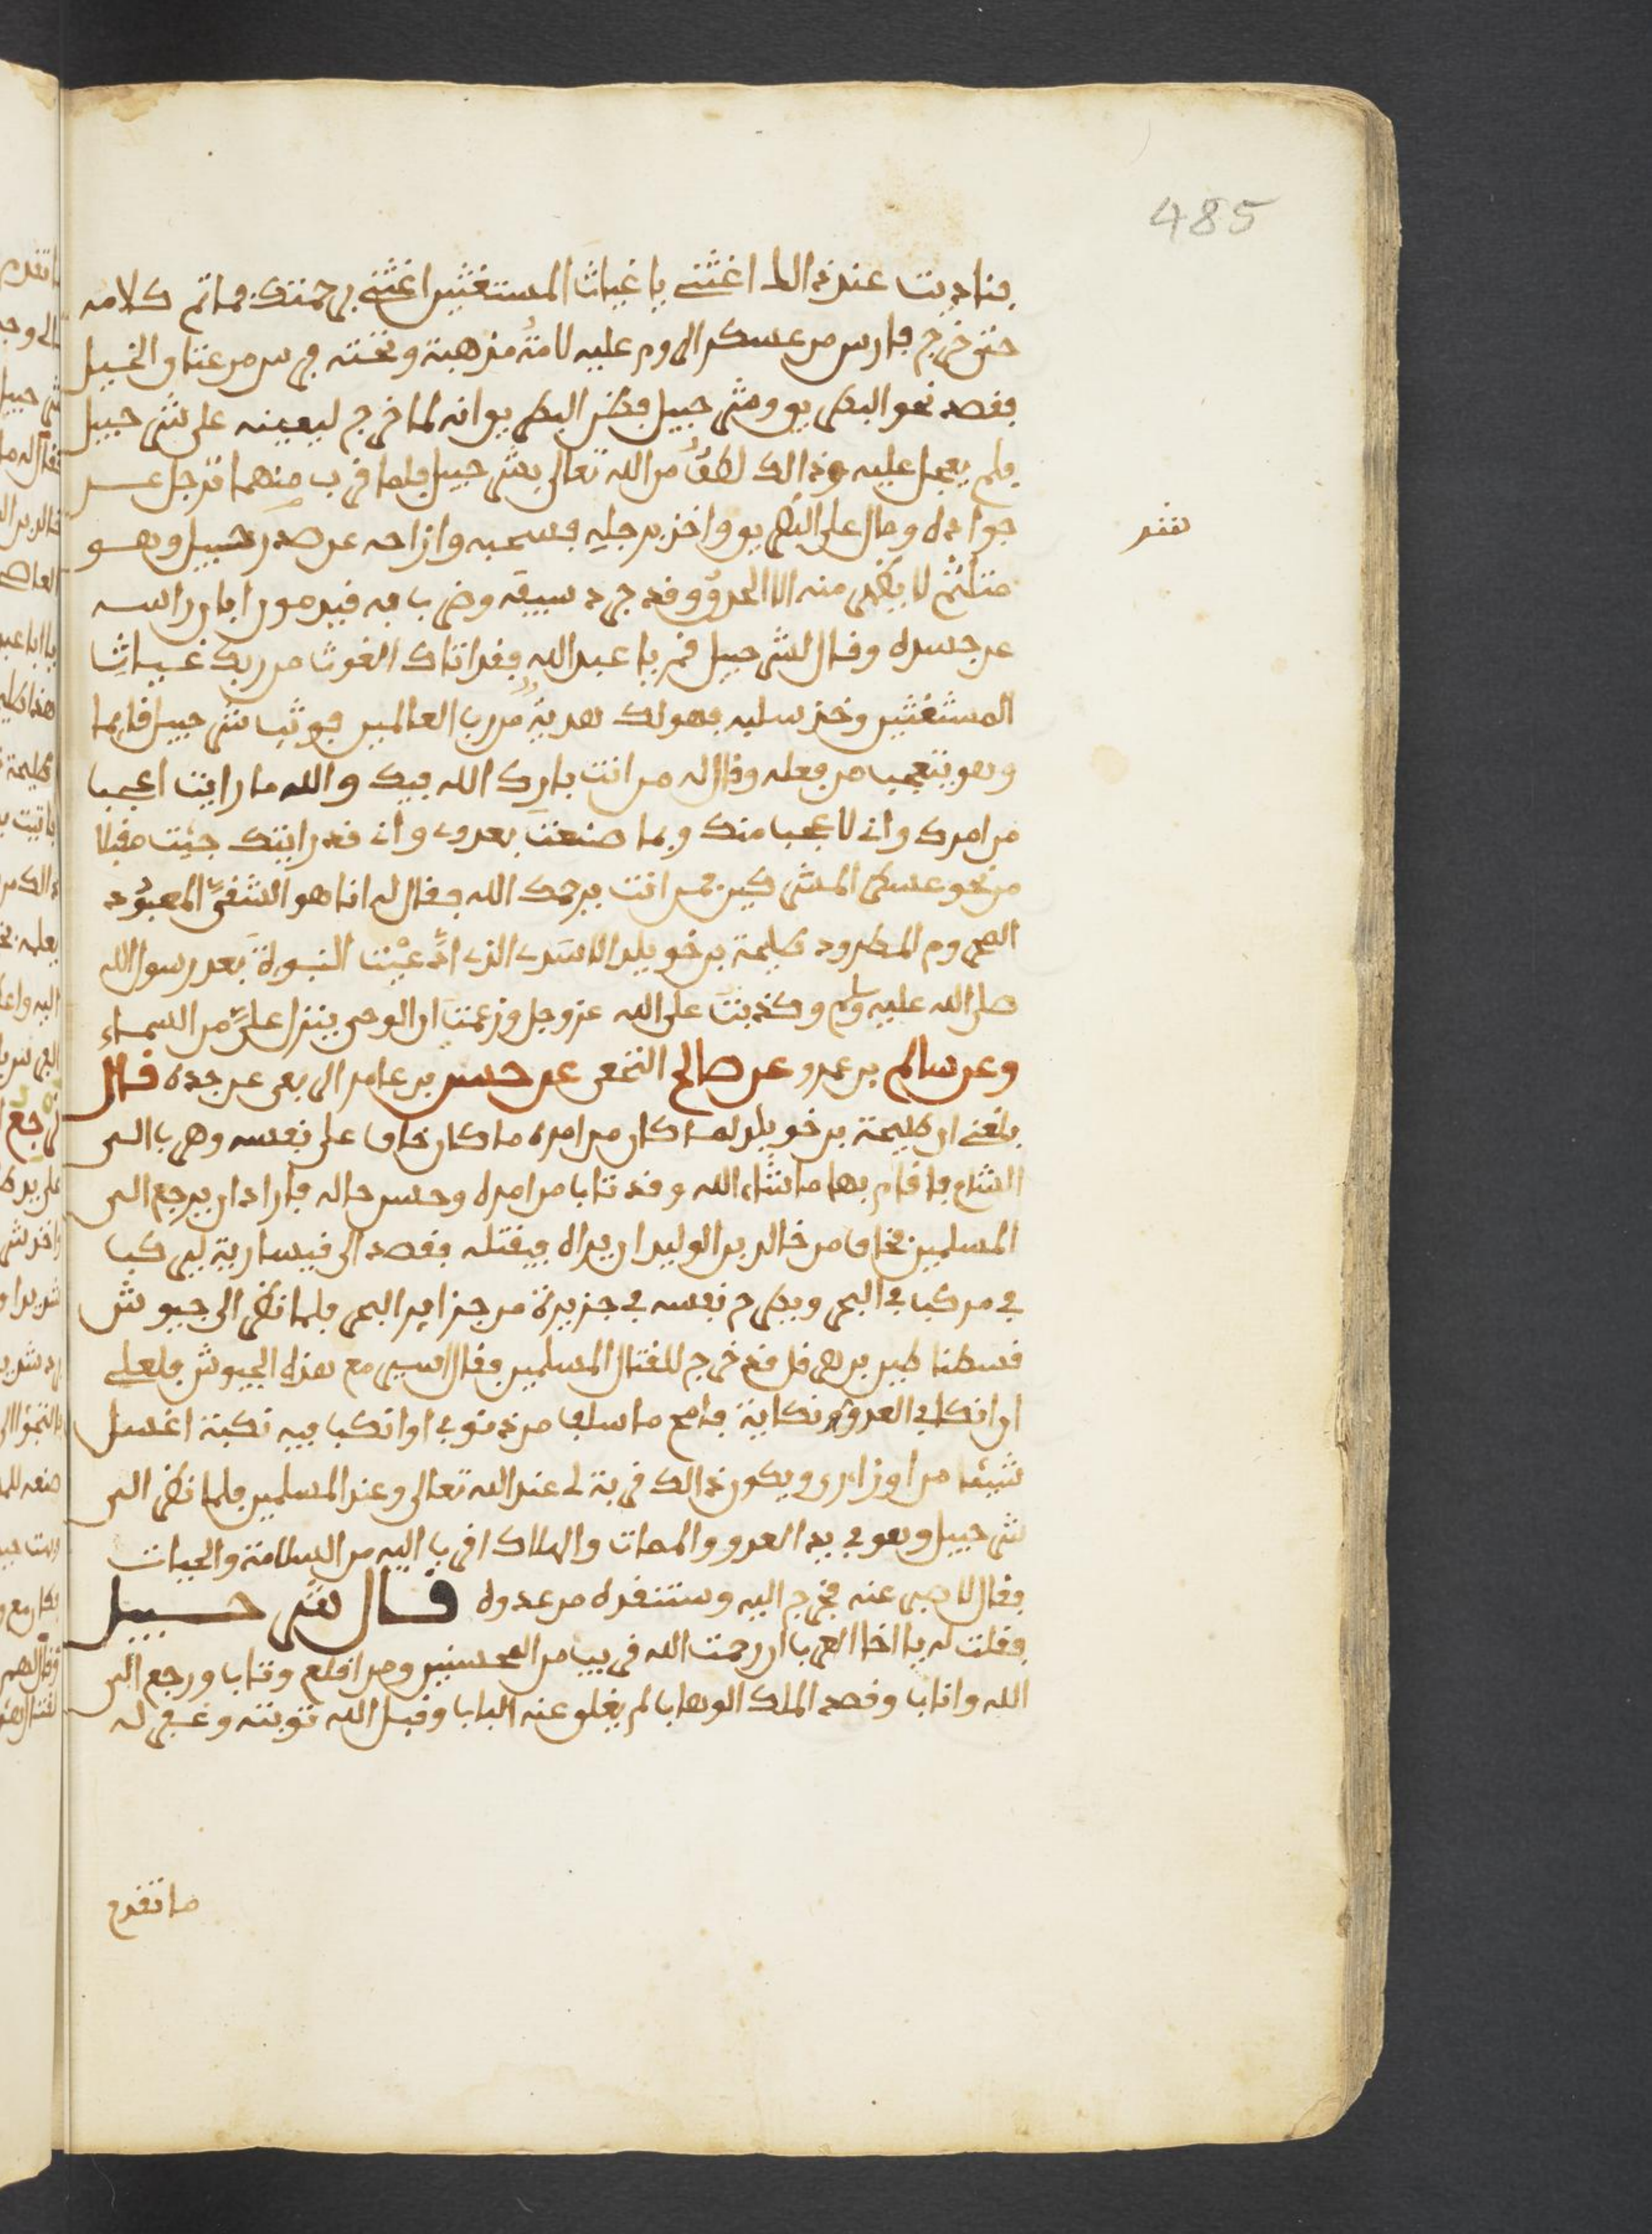 485
فناديت عند ذالك اغثني يا غياث المستغثين اغثني برحمتك فما تم كلامه
حتى خرج فارس من عسكر الروم عليه لامة مذهبة وتحته فرس من عتاق الخيل
فقصد نحو البطريق وشرحبيل فظن البطريق انه لما خرج ليعينه على شرحبيل
فلم يعجل عليه وذالك لطف من الله تعالى بشرحبيل فلما قرب منهما ترجل عن
جواده ومال على البطريق واخذ برجليه فسحبه وازاحه عن صدر شرحبيل وهو
متلثم لا يظهر منه الا الحدق وقد جرد سيفه وضرب به قيدمون ابان راسه
عن جسده وقال لشرحبيل قم يا عبد الله فقد اتاك الغوث من ربك غياث
المستغثين وخذ سلبه فهو لك هدية من رب العالمين فوثب شرحبيل قايما
وهو يتعجب من فعله وقال له من انت بارك الله فيك والله ما رايت اعجب
من امرك واني لاعجب منك وبما صنعت بعدوي واني قد رايتك جيت مقبلا
من نحو عسكر المشركين فمن انت يرحمك الله فقال له انا هو الشقي المعبود
المحروم المطرود طليحة بن خويلد الاسدي الذي ادعيت النبوة بعد رسول الله
صلى الله عليه وسلم وكذبت على الله عز وجل وزعمت ان الوحي ينزل علي من السماء
وعن سالم بن عمرو عن صالح النخعي عن حسن بن عامر الربعي عن جده قال
بلغني ان طليحة بن خويلد لما كان من امره ما كان خاف على نفسه وهرب الى
الشام فاقام بها ما شاء الله وقد تاب من امره وحسن حاله فاراد ان يرجع الى
المسلمين فخاف من خالد بن الوليد ان يراه فيقتله فقصد الى فيسارية ليركب
في مركب في البحر ويطرح نفسه في جزيرة من جزاير البحر فلما نظر الى جيوش
قسطنطين بن هرقل قد خرج للقتال المسلمين فقال اسير مع هذه الجيوش فلعلي
ان انكا في العدو نكاية فامح ما سلف من ذنوبي او انكب فيه نكبة اغسل
شيئا من اوزاري ويكون ذالك قربة لي عند الله تعالى وعند المسلمين فلما نظر الى
شرحبيل وهو في يد العدو والممات والهلاك اقرب اليه من السلامة والحيات
فقال لا صبر عنه فخرج اليه وستنقذه من عدوه قال شرحبيل
فقلت له يا اخا العرب ان رحمت الله قريب من المحسنين ومن اقلع وتاب ورجع الى
الله واناب وقصد الملك الوهاب لم يغلق عنه الباب وقبل الله توبته وغفر له
ما تقدم